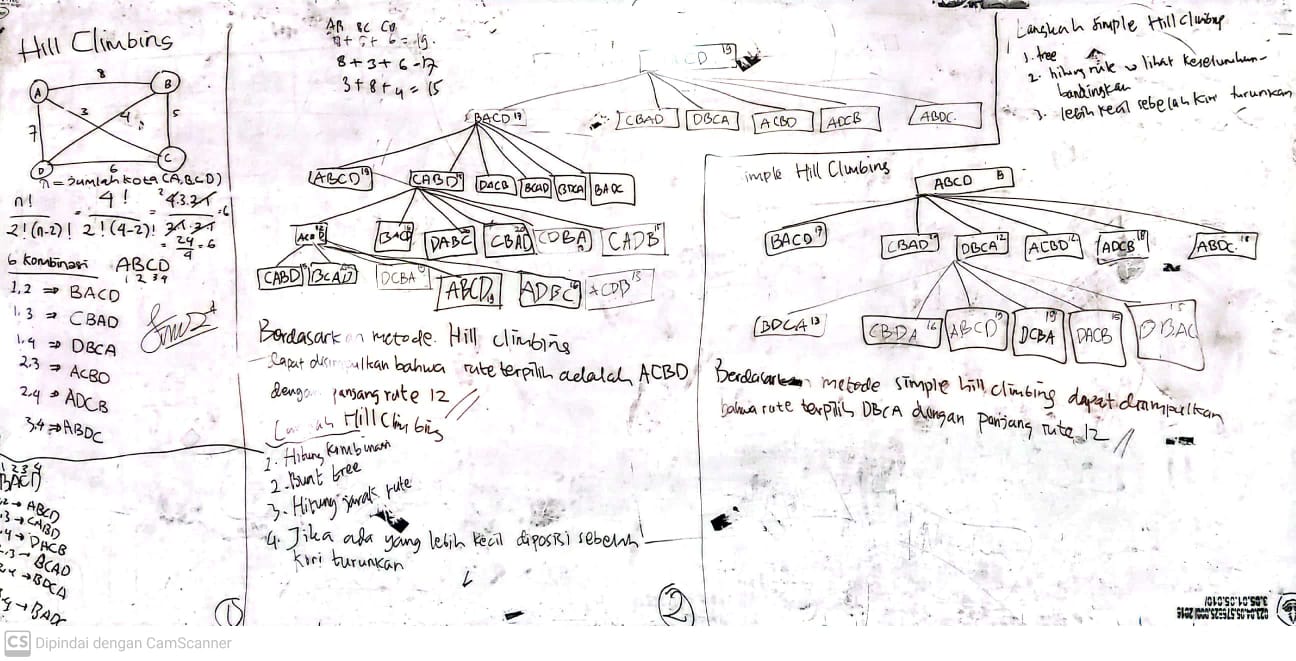 Hill Climbing
A
8
B
3
4
7
5
D
6
C
n = Jumlah kota (A,B,C,D)
n! = 4! = 4.3.2.1 = 6
2!(n-2)! 2!(4-2)! 2.1.2.1
= 24 = 6
4
6 kombinasi ABCD
1 2 3 4
1,2 => BACD
1,3 => CBAD
1,4 => DBCA
2,3 => ACBD
2,4 => ADCB
3,4 => ABDC
1 2 3 4
BACD
→ ABCD
3 → CABD
4 → DACB
2.3 → BCAD
→ BDCA
→ BADC
1
AB BC CD
8 + 5 + 6 = 19.
8 + 3 + 6 - 17
3 + 8 + 4 = 15
CD 19
BACD 17
CBAD
DBCA
ACBD
ADCB
ABDC.
ABCD 19
CABD
DACB
BCAD
BDCA
BADC
ACBD 12
BAC
DABC
CBAD 20
CDBA
CADB 15
CABD
BCAD
DCBA
ABCD 19
ADBC
ACDB 13
Berdasarkan metode Hill climbing
dapat disimpulkan bahwa rute terpilih adalah ACBD
dengan panjang rute 12
Hill Climbing
1. Hitung kombinasi
2. Buat tree
3. Hitung jarak rute
4. Jika ada yang lebih kecil diposisi sebelah
kiri turunkan
2
Langkah simple Hill climbing
1. tree
2. hitung rute lihat keseluruhan
bandingkan
3. lebih kecil sebelah kiri turunkan
imple Hill Climbing
ABCD
BACD
CBAD
DBCA 12
ACBD 12
ADCB 18
ABDC. 18
BDCA 13
CBDA 16
ABCD 19
DCBA 19
DACB 15
DBAC 15
Berdasarkan metode simple hill climbing dapat disimpulkan
bahwa rute terpilih DBCA dengan panjang rute 12
CS Dipindai dengan CamScanner